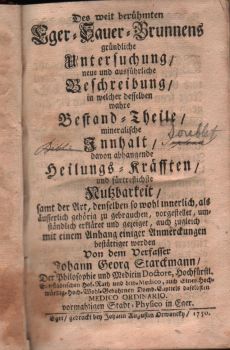 Des weit berühmten
Eger-Sauer-Brunnens
gründliche
Untersuchung,
neue und ausführliche
Beschreibung,
in welcher desselben
wahre
Bestand-Theile,
mineralische
Doublet
Innhalt,
davon abhangende
Heilungs-Kräfften,
und fürtreflichste
Nutzbarkeit,
samt der Art, denselben so wohl innerlich, als
äusserlich gehörig zu gebrauchen, vorgestellet, um-
ständlich erkläret und gezeiget, auch zugleich
mit einem Anhang einiger Anmerckungen
bestättiget worden
Von dem Verfasser
Johann Georg
Der Philosophie und Medicin Doctore, Hochfürstl.
Hof-Rath und Medico, auch Eines Hoch-
würdig-Hoch-Wohl-Gebohrnen Domb-Capituls daselbsten
MEDICO ORDINARIO,
vormahligen Stadt-Physico in Eger.
Eger, gedruckt bey Johann 1750.